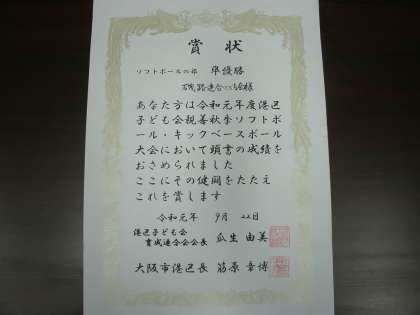 賞状
ソフトボールの部 準優勝
磯路連合こども会様
あなた方は令和元年度港区
子ども会親善秋季ソフトボ
ール・キックベースボール
大会において頭書の成績を
おさめられました
ここにその健闘をたたえ
これを賞します
令和元年 9月 22日
港区子ども会
育成連合会会長 瓜生 由美
大阪市港区長 筋原 章博